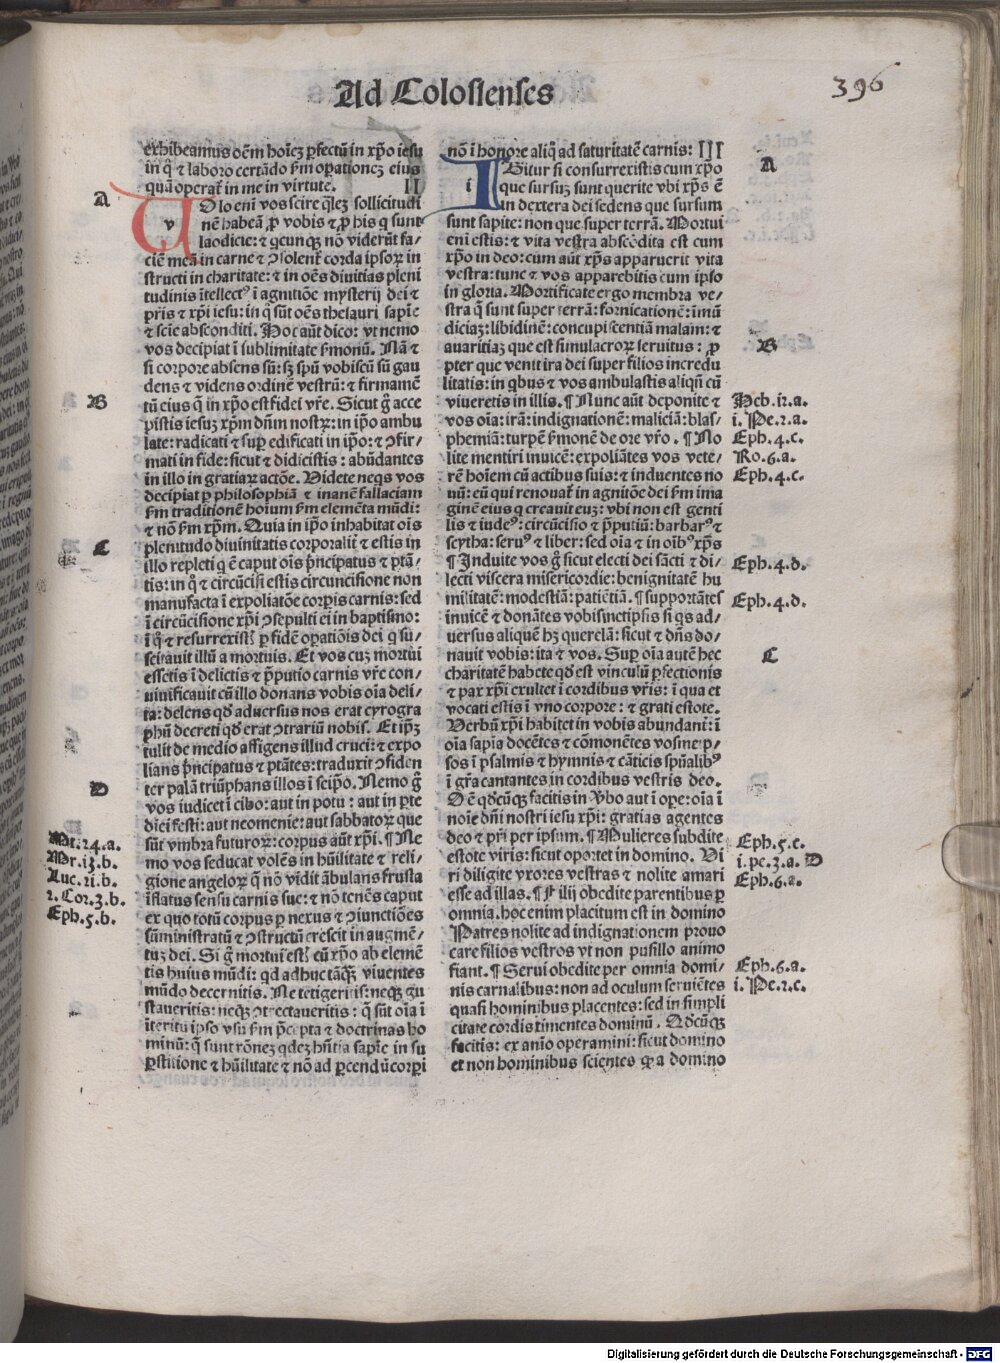 Ad Colosienses
396
exhibeamus oēm hoīeʒ ꝑfectū in xp̄o iesu
in q̄ ⁊ laboro certādo ẜm oꝑationeʒ eius
quā operat̄ in me in virtute. II
A
v
Olo eni vos scire q̄leʒ sollicitudi
nē habeā ꝓ vobis ⁊ ꝓ his q̄ sunt
laodicie: ⁊ q̄cunqꝫ nō viderūt fa/
ciē meā in carne ⁊ ꝯsolent̄ corda ipsoꝝ in
structi in charitate: ⁊ in oēs diuitias pleni
tudinis ītellectꝰ ī agnitiōe mysterij dei ⁊
pr̄is ⁊ xp̄i iesu: in q̄ sūt oēs thesauri sapīe
⁊ scīe absconditi. Hoc aūt dico: vt nemo
vos decipiat ī sublimitate ẜmonū. Nā ⁊
si corpore absens sū: sꝫ spū vobiscū sū gau
dens ⁊ videns ordinē vestrū: ⁊ firmamē
B
tū eius q̄ in xp̄o est fidei vr̄e. Sicut g̊ acce
pistis iesuʒ xp̄m dn̄m nostꝝ: in ip̄o ambu
late: radicati ⁊ suꝑ edificati in ip̄o: ⁊ ꝯfir/
mati in fide: sicut ⁊ didicistis: abūdantes
in illo in gratiaꝝ actōe. Videte neqs vos
decipiat ꝑ philosophiā ⁊ inanē fallaciam
ẜm traditionē hoīum ẜm elemēta mūdi:
⁊ nō ẜm xp̄m. Quia in ip̄o inhabitat oīs
C
plenitudo diuinitatis corporalit̄ ⁊ estis in
illo repleti q̄ ē caput oīs pr̄ncipatus ⁊ ptā/
tis: in q̄ ⁊ circūcisi estis circuncisione non
manufacta ī expoliatōe corpꝫis carnis: sed
ī circūcisione xp̄i ꝯsepulti ei in baptismo:
ī q̄ ⁊ resurrexistꝭ ꝑ fidē oꝑatiōis dei q̄ su/
scitauit illū a mortuis. Et vos cuʒ mortui
essetis ī delictis ⁊ p̄putio carnis vr̄e con/
viuificauit cū illo donans vobis oīa deli/
ta: delens qd̄ aduersus nos erat cyrogra
phū decreti qd̄ erat ꝯtrariū nobis. Et ipꝫ
tulit de medio affigens illud cruci: ⁊ expo
lians pr̄ncipatus ⁊ ptātes: traduxit ꝯfiden
D
ter palā triūphans illos ī seip̄o. Nemo g̊
vos iudicet ī cibo: aut in potu: aut in ꝑte
diei festi: aut neomenie: aut sabbatoꝝ que
sūt vmbra futuroꝝ: corpus aūt xp̄i. ¶ Ne
mo vos seducat volēs in hūilitate ⁊ reli/
gione angeloꝝ q̄ nō vidit ābulans frusta
īflatus sensu carnis sue: ⁊ nō tenēs caput
ex quo totū corpus ꝑ nexus ⁊ ꝯiunctiōes
sūministratū ⁊ ꝯstructū crescit in augmē/
tuʒ dei. Si g̊ mortui estꝭ cū xp̄o ab elemē
tis huius mūdi: qd adhuc tāqꝫ viuentes
mūdo decernitis. Ne tetigeritis: neqꝫ gu
staueritis: neqꝫ ꝯtrectaueritis: q̄ sūt oīa ī
īteritū ipso vsu ẜm p̄cepta ⁊ doctrinas ho
minū: q̄ sunt rōneʒ qdeʒ hn̄tia sapīe in su
ꝑstitione ⁊ hūilitate ⁊ nō ad ꝑcendū corpꝫi
Mt.24.a.
Mr.13.b.
Luc.21.b.
2.Cor.3.b.
Eph.5.b.
nō ī honore aliq̄ ad saturitatē carnis: III
A
i
Gitur si consurrexistis cum xp̄o
que sursuʒ sunt querite vbi xp̄s ē
in dextera dei sedens que sursum
sunt sapite: non que super terrā. Mortui
eni estis: ⁊ vita vestra abscōdita est cum
xp̄o in deo: cum aūt xp̄s apparuerit vita
vestra: tunc ⁊ vos apparebitis cum ipso
in gloria. Mortificate ergo membra ve/
stra q̄ sunt super terrā: fornicationē: īmū
diciaʒ: libidinē: concupiscentiā malam: ⁊
B
auaritiaʒ que est simulacroꝝ seruitus: ꝓ
pter que venit ira dei super filios incredu
litatis: in qbus ⁊ vos ambulastis aliqn̄ cū
viueretis in illis. ¶ Nunc aūt deponite ⁊
vos oīa: irā: indignationē: maliciā: blas/
phemiā: turpē ẜmonē de ore vr̄o. ¶ No
lite mentiri inuicē: expoliātes vos vete/
rē hoīem cū actibus suis: ⁊ induentes no
uū: eū qui renouat̄ in agnitōe dei ẜm ima
ginē eius q̄ creauit euʒ: vbi non est genti
lis ⁊ iudeꝰ: circūcisio ⁊ p̄putiū: barbarꝰ ⁊
scytha: seruꝰ ⁊ liber: sed oīa ⁊ in oībꝰ xp̄s
¶ Induite vos g̊ sicut electi dei sācti ⁊ di/
lecti viscera misericordie: benignitatē hu
militatē: modestiā: patiētiā. ¶ supportātes
inuicē ⁊ donātes vobisipsis si qs ad/
uersus aliquē hꝫ querelā: sicut ⁊ dn̄s do/
nauit vobis: ita ⁊ vos. Suꝑ oīa autē hec
charitatē habete qd̄ est vinculū ꝑfectionis
⁊ pax xp̄i exultet ī cordibus vr̄is: ī qua et
vocati estis ī vno corpore: ⁊ grati estote.
Verbū xp̄i habitet in vobis abundant̄: ī
oīa sapīa docētes ⁊ cōmonētes vosmeip/
sos ī psalmis ⁊ hymnis ⁊ cāticis spūalibꝰ
ī gr̄a cantantes in cordibus vestris deo.
Oē qd̄cūqꝫ facitis in v̄bo aut ī oꝑe: oīa ī
noīe dn̄i nostri iesu xp̄i: gratias agentes
deo ⁊ pr̄i per ipsum. ¶ Mulieres subdite
estote viris: sicut oportet in domino. Vi
ri diligite vxores vestras ⁊ nolite amari
esse ad illas. ¶ Filij obedite parentibus ꝑ
omnia. hoc enim placitum est in domino
Patres nolite ad indignationem prouo
care filios vestros vt non pusillo animo
fiant. ¶ Serui obedite per omnia domi/
nis carnalibus: non ad oculum seruiētes
quasi hominibus placentes: sed in simpli
citate cordis timentes dominū. Qd̄cūqꝫ
facitis: ex aīo operamini: sicut domino
et non hominibus scientes ꝙ a domino
Heb.12.a.
i.Pe.2.a.
Eph.4.c.
Ro.6.a.
Eph.4.c.
Eph.4.d.
Eph.4.d.
C
Eph.5.c.
i.pe.3.a. D
Eph.6.a.
Eph.6.a.
i.Pe.2.c.
Digitalisierung gefördert durch die Deutsche Forschungsgemeinschaft - DFG